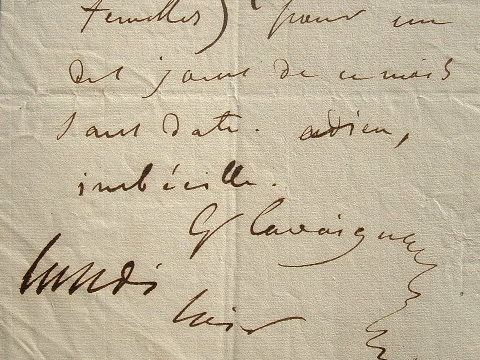 femelles) pour un
des jours de ce mois
sans date. adieu,
imbécille.
G Cavaignac
lundi
soir